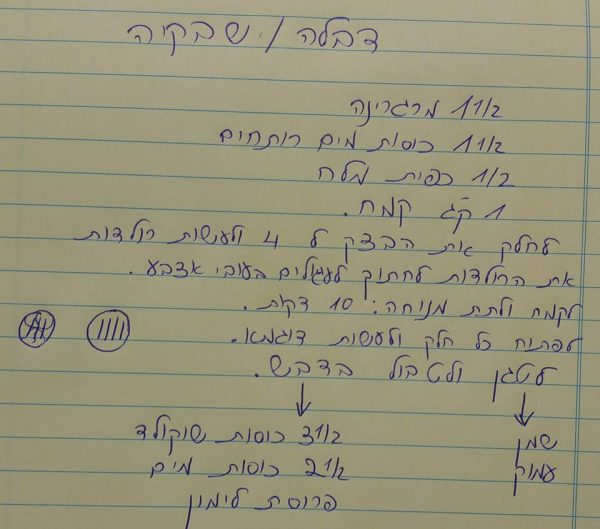 דבלה / שבקיה
1 1/2 מרגרינה
1 1/2 כוסות מים רותחים
1/2 כפית מלח
1 ק"ג קמח.
לחלק את הבצק ל 4 ולעשות רולדות
את הרולדות לחתוך לעגולים בעובי אצבע.
לקמח ולתת מנוחה: 10 דקות.
לפתוח כל חלק ולעשות דוגמא.
לטגן ולטבול בדבש.
שמן עמוק
3 1/2 כוסות שוקולד
2 1/2 כוסות מים
פרוסת לימון